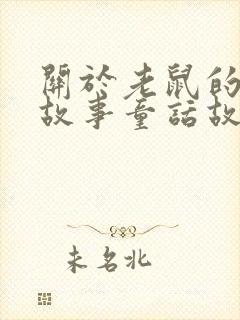 關於老鼠的
故事童話故
未名北